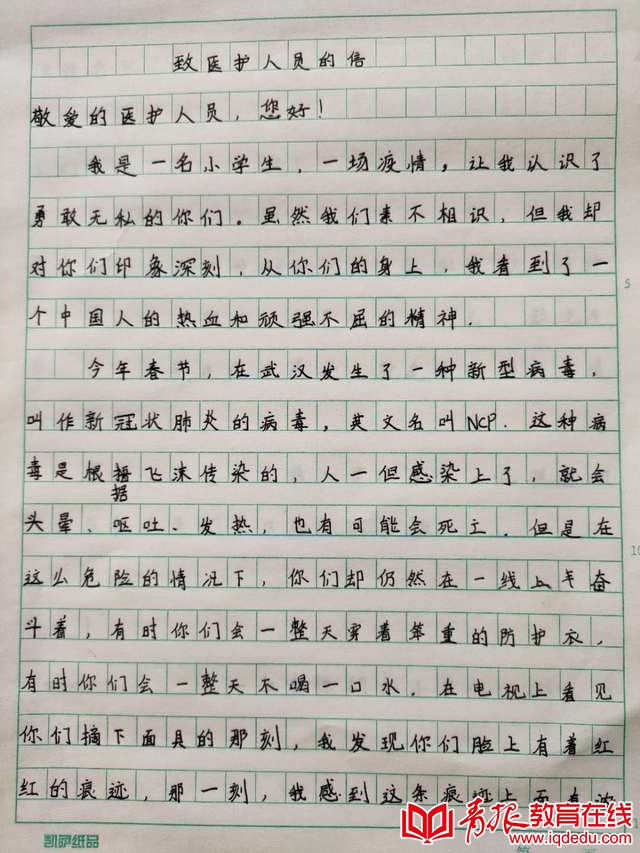 致医护人员的信
敬爱的医护人员，您好！
我是一名小学生，一场疫情，让我认识了
勇敢无私的你们。虽然我们素不相识，但我却
对你们印象深刻，从你们的身上，我看到了一
个中国人的热血和顽强不屈的精神．
今年春节，在武汉发生了一种新型病毒，
叫作新冠状肺炎的病毒，英文名叫NCP．这种病
毒是根据飞沫传染的，人一但感染上了，就会
头晕、呕吐、发热，也有可能会死亡．但是在
这么危险的情况下，你们却仍然在一线上奋
斗着，有时你们会一整天穿着笨重的防护衣，
有时你们会一整天不喝一口水．在电视上看见
你们摘下面具的那刻，我发现你们脸上有着红
红的痕迹，那一刻，我感到这条痕迹上面有
凯萨纸品
5
10
青报教育在线
www.iqdedu.com